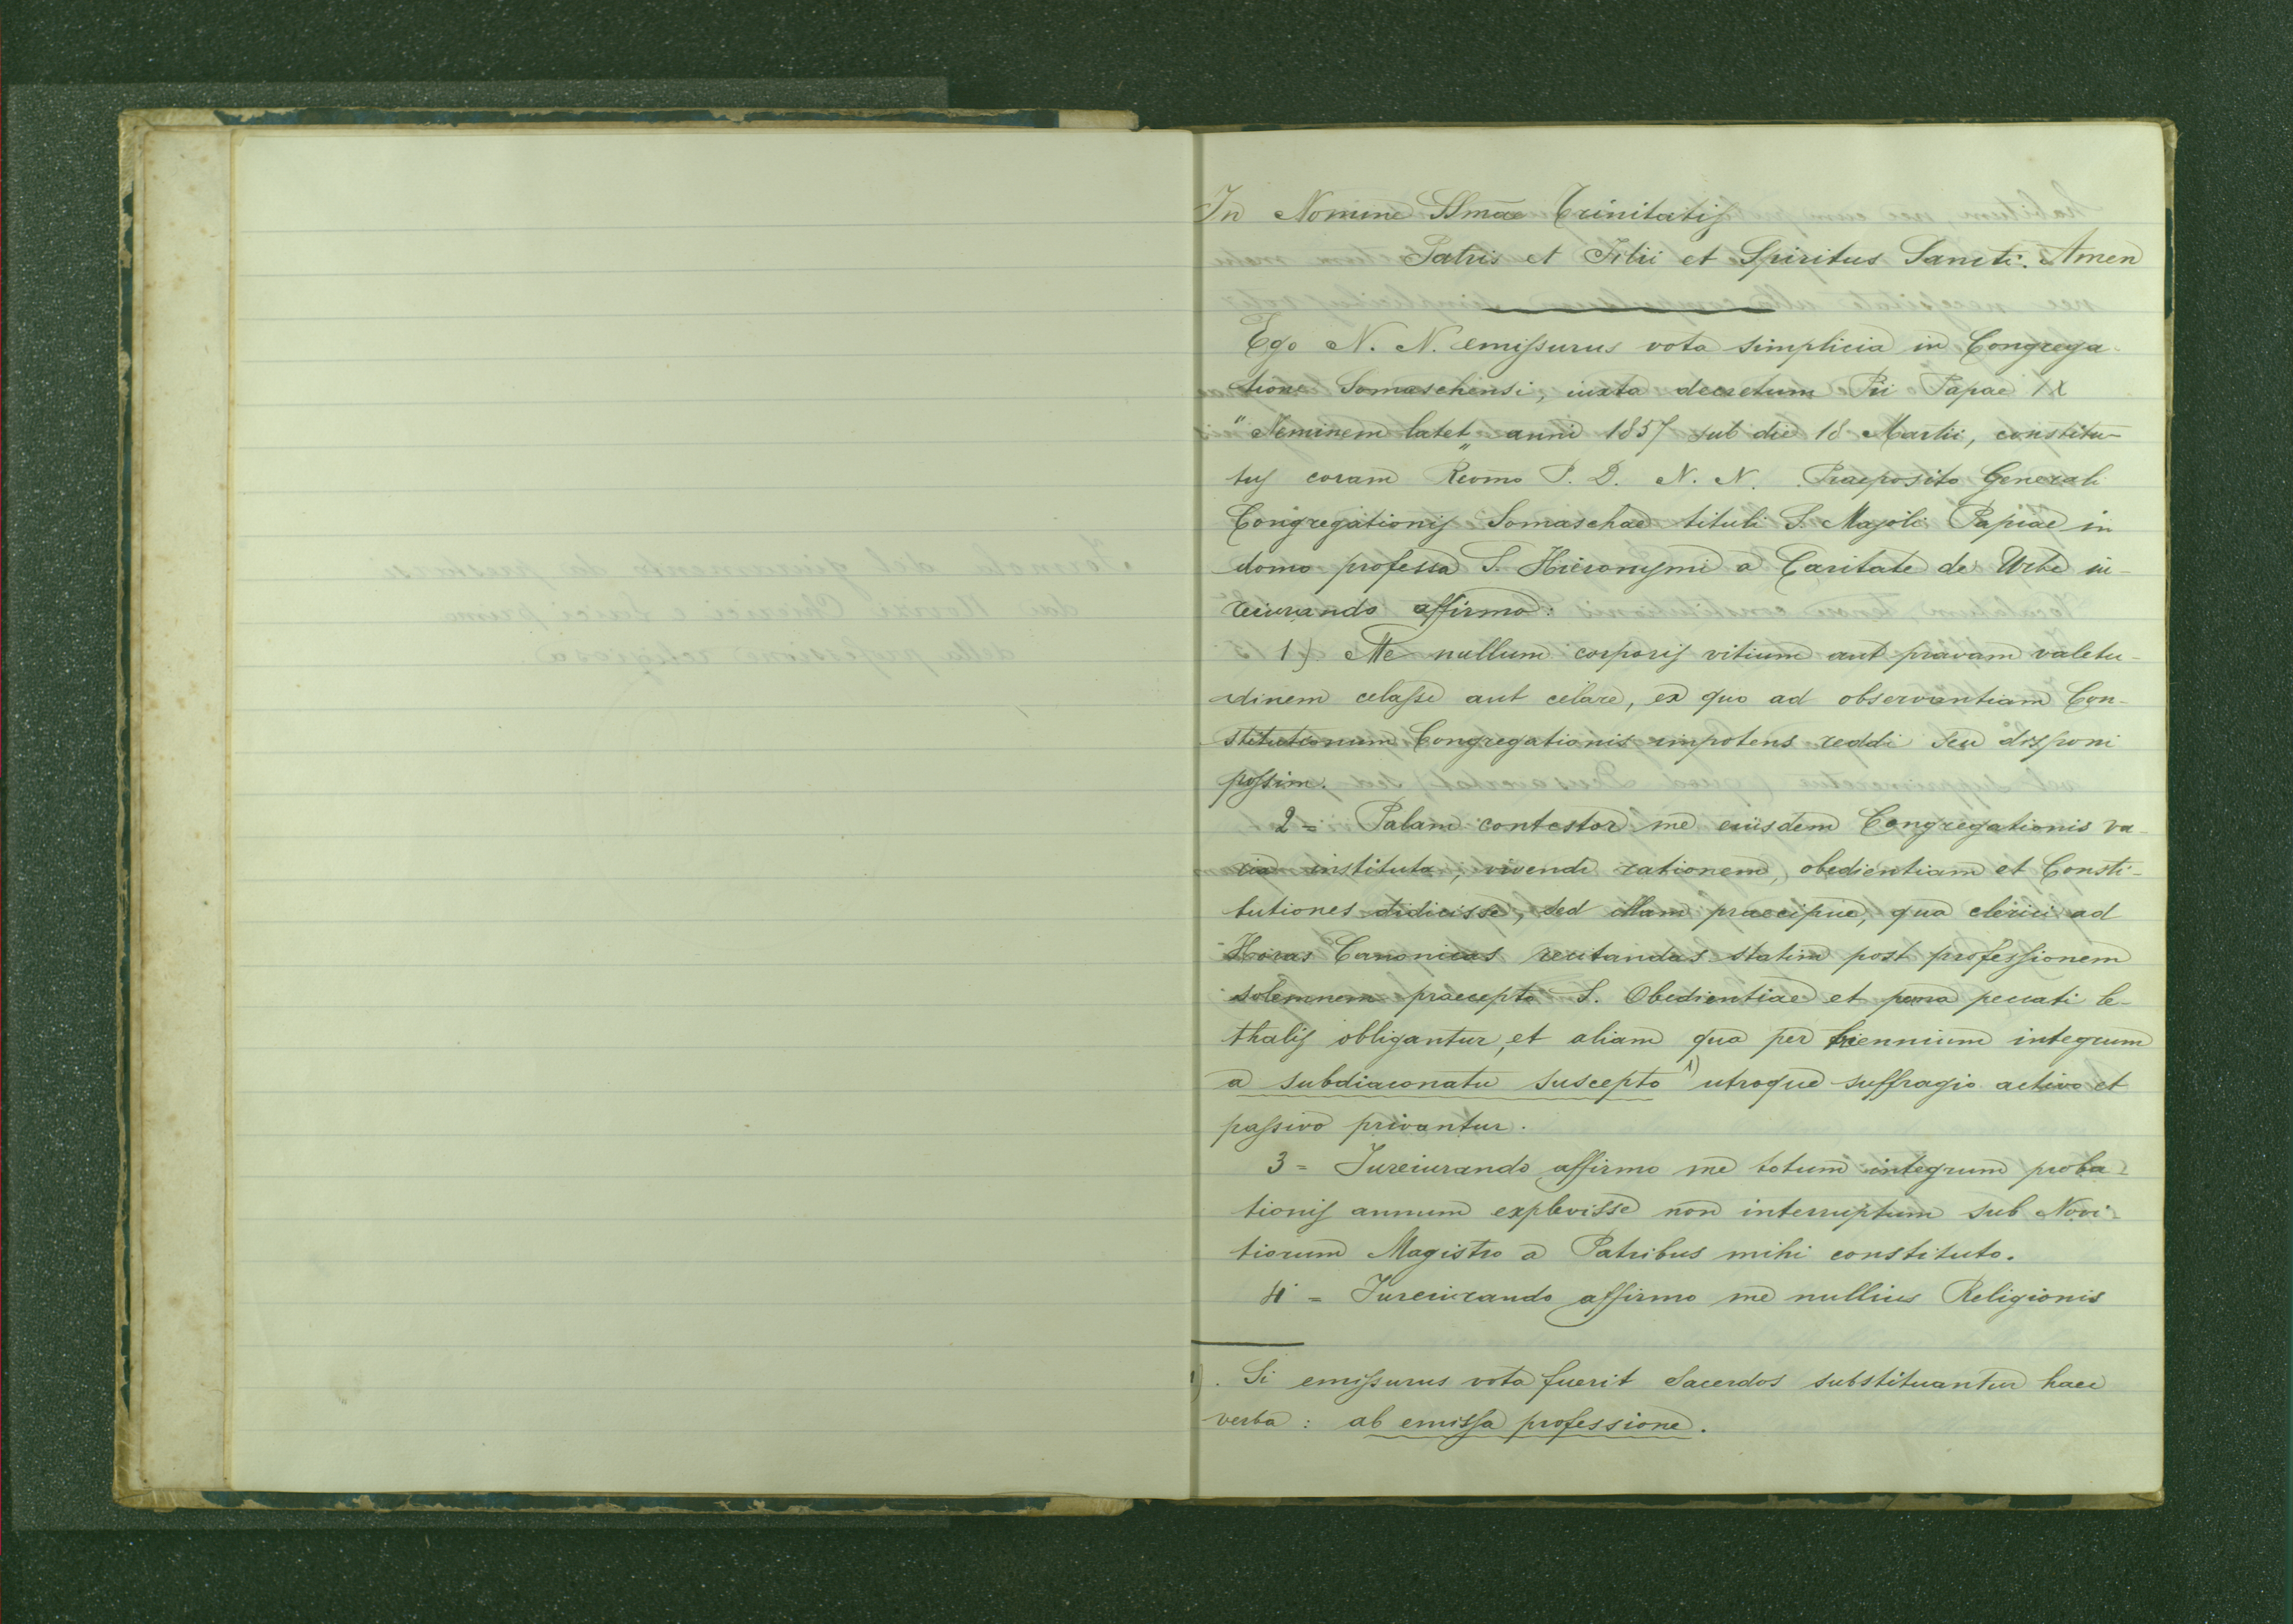 In Nomine SSmae Trinitatis
Patris et Filii et Spiritus Sancti. Amen
Ego N. N. emissurus vota simplicia in Congrega-
tione Somaschensi, iuxta decretum Pii Papae IX
"Neminem latet„ anni 1857 sub die 18 Martii, constitu-
tus coram Rev̄mo P. D. N. N. Praeposito Generali
Congregationis Somaschae tituli S. Majoli Papiae in
domo professa S. Hieronymi a Caritate de Urbe iu-
reiurando affirmo:
1) Me nullum corporis vitium aut pravam valetu-
dinem celasse aut celare, ex quo ad observantiam Con-
stitutionum Congregationis impotens reddi seu disponi
possim.
2 = Palam contestor me eiusdem Congregationis va-
ria instituta, vivendi rationem, obedientiam et Consti-
tutiones didicisse, sed illam praecipue, qua clerici ad
Horas Canonicas recitandas statim post professionem
solemnem praecepto S. Obedientiae et poena peccati le-
thalis obligantur, et aliam qua per triennium integrum
a subdiaconatu suscepto 1) utroque suffragio activo et
passivo privantur.
3 = Iureiurando affirmo me totum integrum proba-
tionis annum explevisse non interruptum sub Novi-
tiorum Magistro a Patribus mihi constituto.
4 = Iureiurando affirmo me nullius Religionis
1). Si emissurus vota fuerit Sacerdos substituantur haec
verba: ab emissa professione.